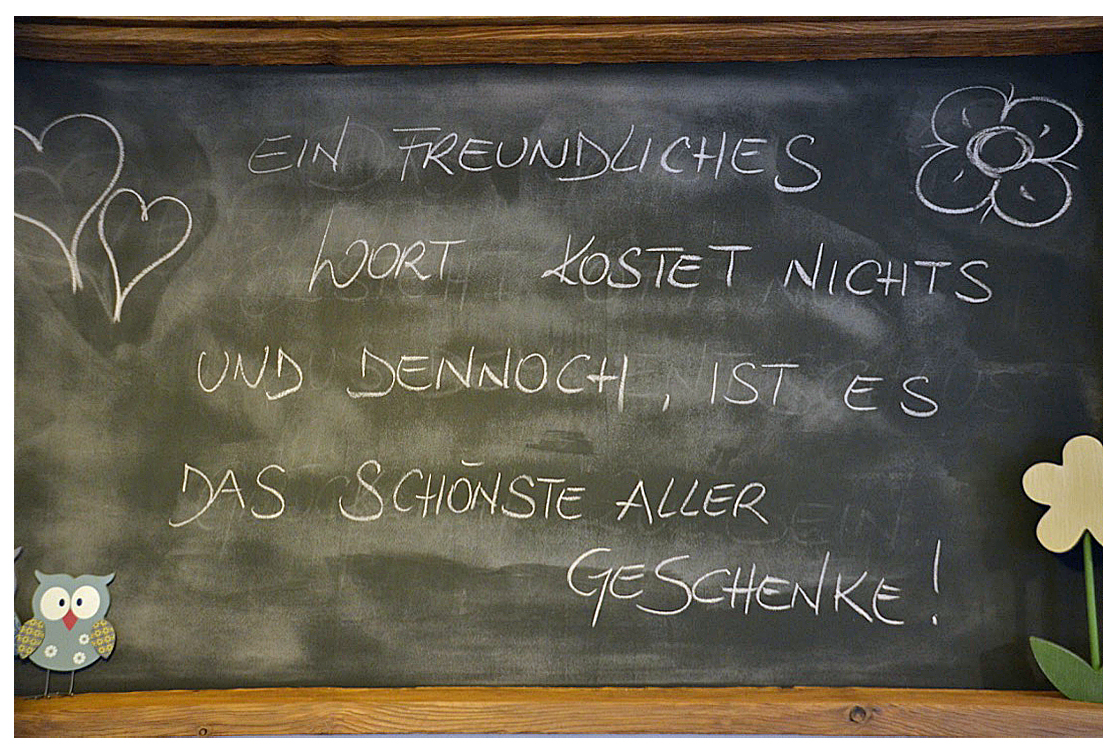 EIN FREUNDLICHES
WORT KOSTET NICHTS
UND DENNOCH, IST ES
DAS SCHÖNSTE ALLER
GESCHENKE!